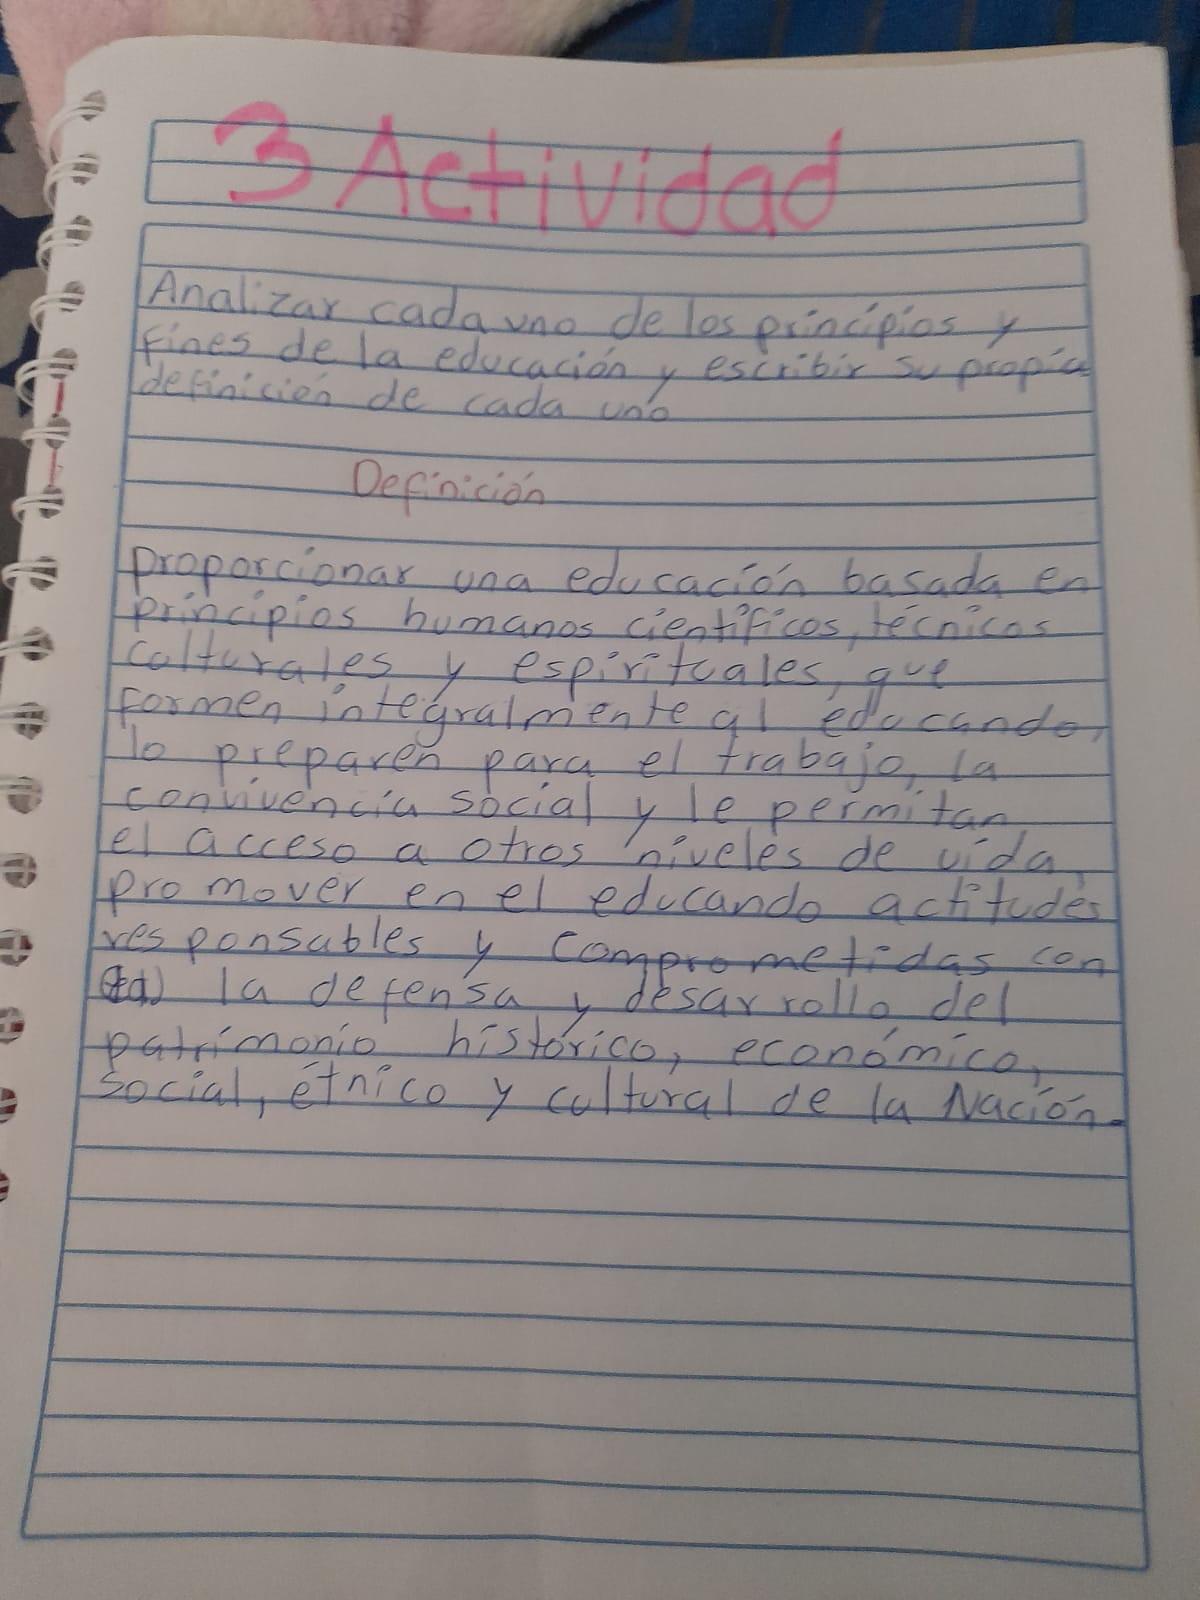 3 Actividad
Analizar cada uno de los principios y
fines de la educación y escribir su propia
definición de cada uno
Definición
proporcionar una educación basada en
principios humanos científicos, técnicos
culturales y espirituales, que
formen integralmente al educando,
lo preparen para el trabajo, la
convivencia social y le permitan
el acceso a otros niveles de vida,
promover en el educando actitudes
responsables y comprometidas con
la defensa y desarrollo del
patrimonio histórico, económico,
social, étnico y cultural de la Nación.